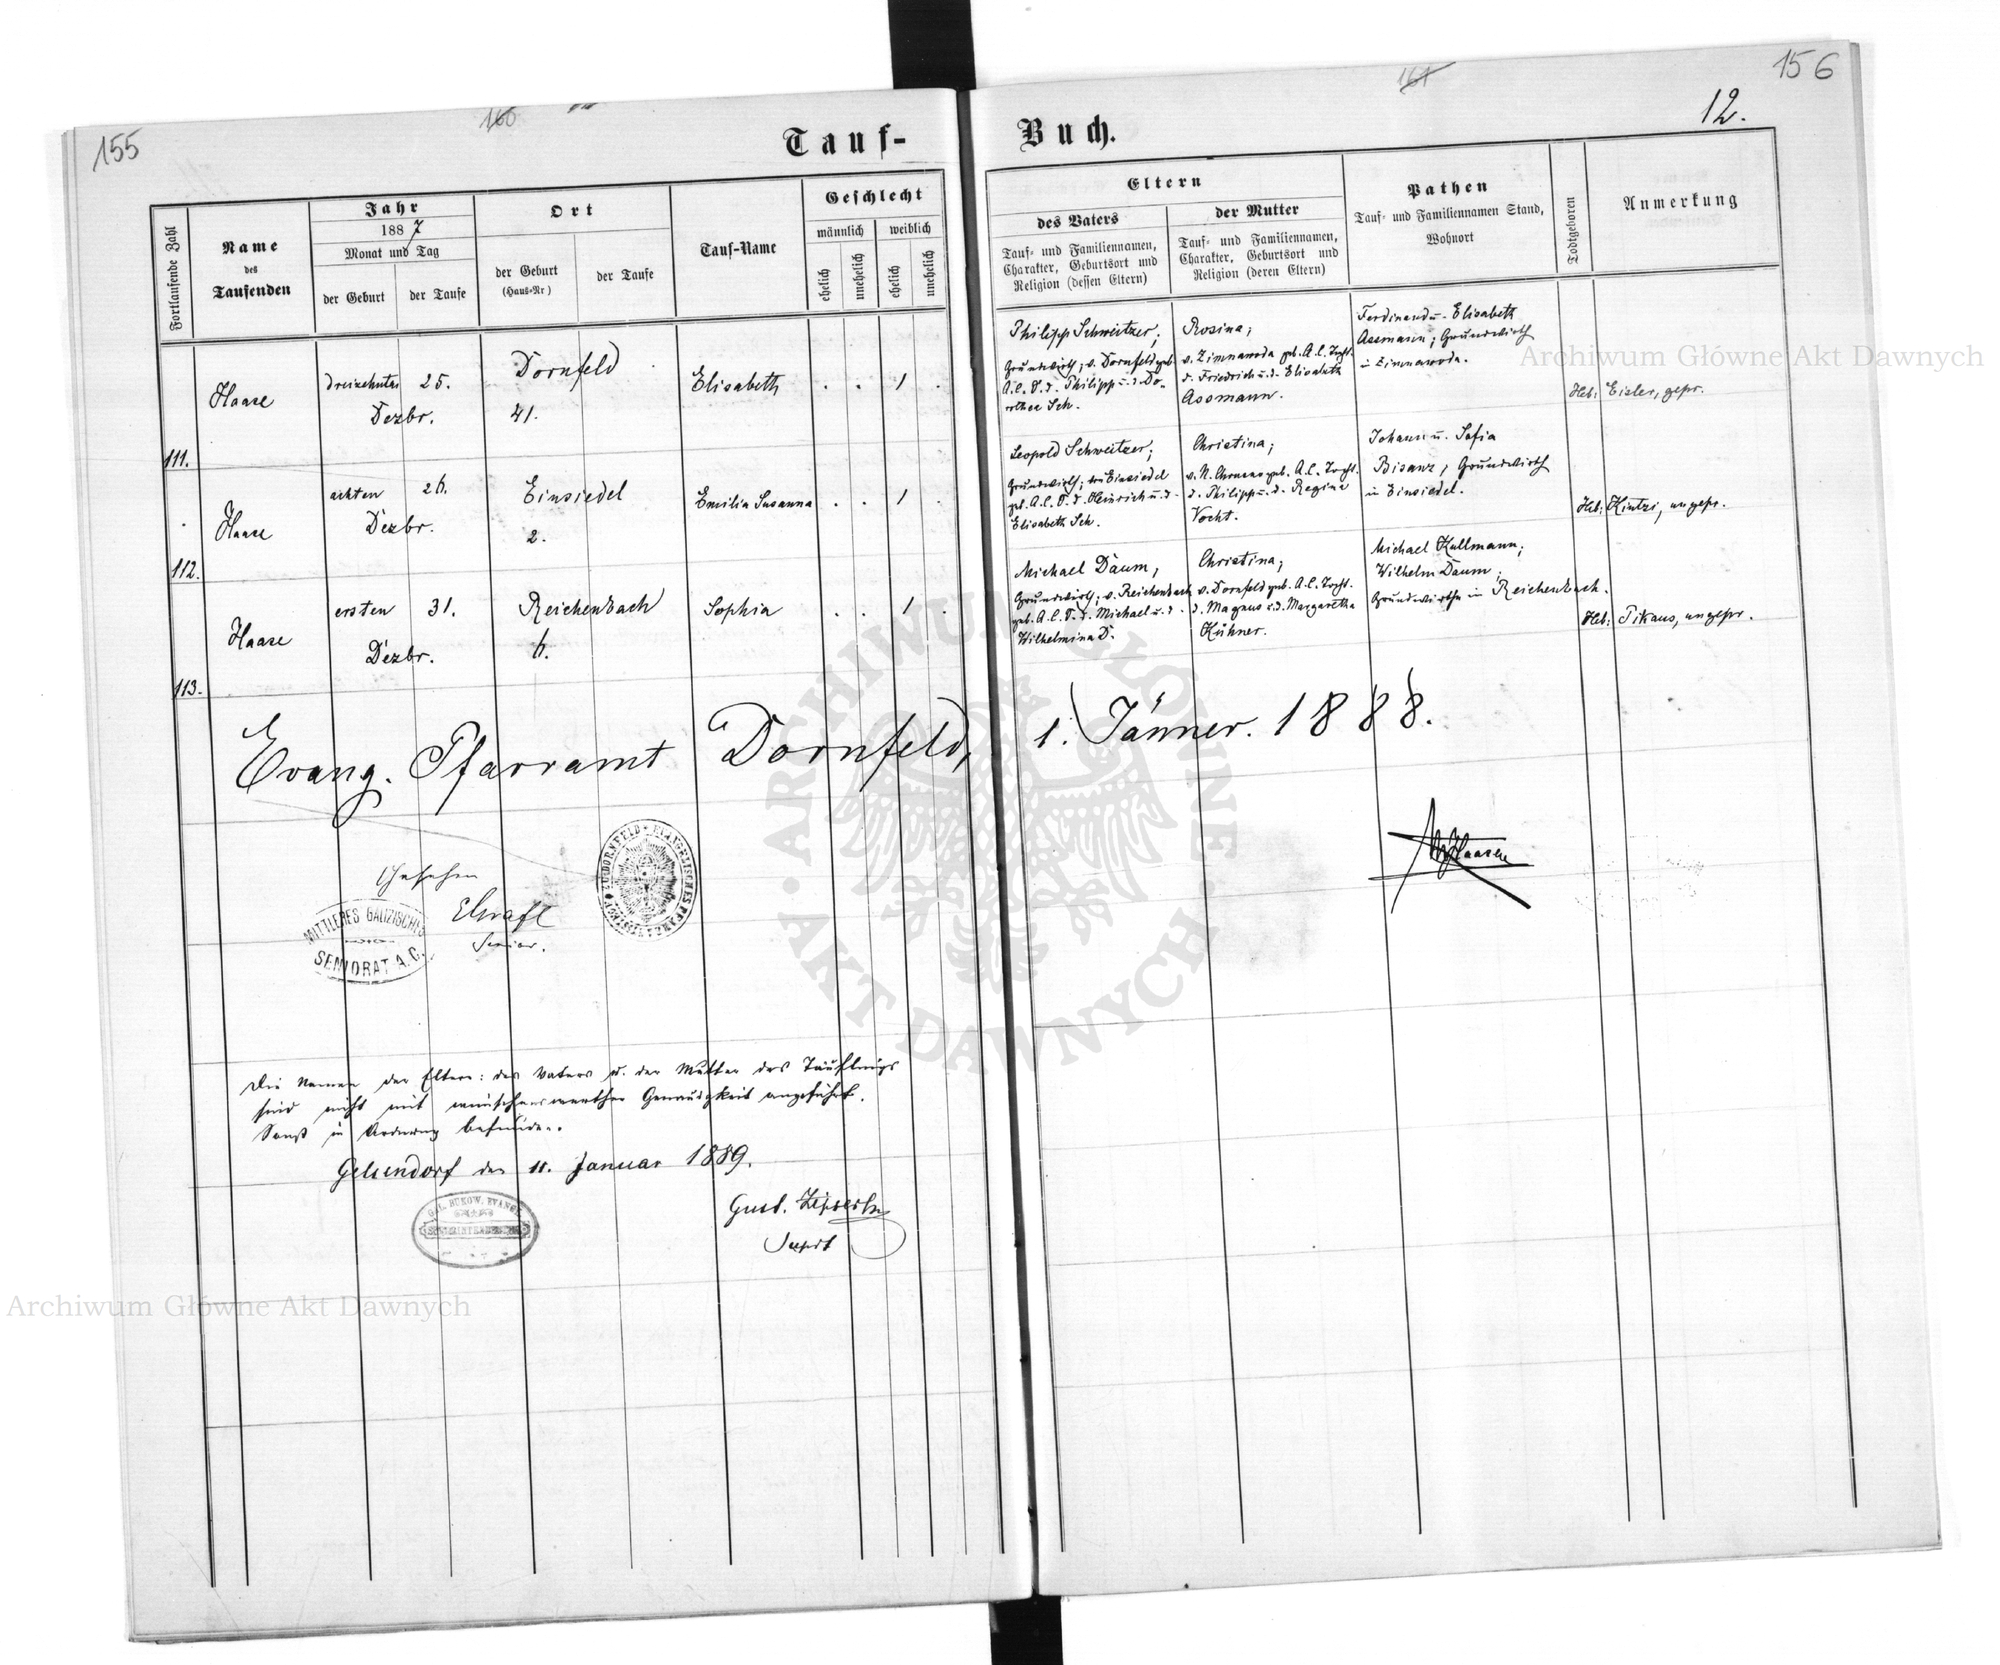 155
160
Tauf-
Fortlaufende Zahl
Name
des
Taufenden
Jahr
1887
Monat und Tag
der Geburt
der Taufe
Ort
der Geburt
(Haus-Nr)
der Taufe
Tauf-Name
Geschlecht
männlich
weiblich
ehelich
unehelich
ehelich
unehelich
Haase
dreizehnten 25.
Dezbr.
Dornfeld
41.
Elisabeth
. . 1 .
111.
Haase
achten 26.
Dezbr.
Einsiedel
2.
Emilia Susanna
. . 1 .
112.
Haase
ersten 31.
Dezbr.
Reichenbach
6.
Sophia
. . 1 .
113.
Evang. Pfarramt Dornfeld,
Gesehen
Senior.
MITTLERES GALIZISCHES
SENIORAT A.C.
EVANGELISCHES PFARRAMT ZU DORNFELD
Die Namen der Eltern: des Vaters u. der Mutter des Täuflings
sind nicht mit wünschenswerther Genauigkeit angeführt.
Sonst in Ordnung befunden.
Gelsendorf den 11. Januar 1889.
Gust.
Supdt
GAL. BUKOW. EVANG.
SUPERINTENDENZ
161
156
12.
Buch.
Eltern
des Vaters
Tauf- und Familiennamen,
Charakter, Geburtsort und
Religion (dessen Eltern)
der Mutter
Tauf- und Familiennamen,
Charakter, Geburtsort und
Religion (deren Eltern)
Pathen
Tauf- und Familiennamen Stand,
Wohnort
Todtgeboren
Anmerkung
Philipp Schweitzer;
Grundwirth; v. Dornfeld geb.
A.C. S. d. Philipp u. d. Do-
rothea Sch.
Rosina;
v. Zimnawoda geb. A.C. Tocht.
d. Friedrich u. d. Elisabeth
Assmann.
Ferdinand u. Elisabeth
Assmann; Grundwirth
in Zimnawoda.
Heb: Eisler, gepr.
Leopold Schweitzer;
Grundwirth; von Einsiedel
geb. A.C. S. d. Heinrich u. d.
Elisabeth Sch.
Christina;
v. N. Chrusno geb. A.C. Tocht.
d. Philipp u. d. Regina
Vocht.
Johann u. Sofia
Bisanz, Grundwirth
in Einsiedel.
Heb: Kintzi, ungepr.
Michael Daum,
Grundwirth; v. Reichenbach
geb. A.C. S. d. Michael u. d.
Wilhelmina D.
Christina;
v. Dornfeld geb. A.C. Tocht.
d. Magnus u. d. Margaretha
Kühner.
Michael Kullmann;
Wilhelm Daum;
Grundwirthe in Reichenbach.
Heb: Pikaus, ungepr.
1. Jänner. 1888.
Haase
Archiwum Główne Akt Dawnych
Archiwum Główne Akt Dawnych
ARCHIWUM GŁÓWNE · AKT DAWNYCH ·